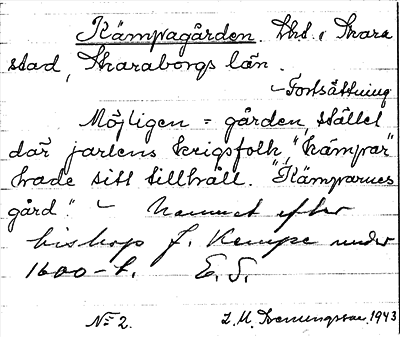 Kämpagården. Ths. i Skara
stad, Skaraborgs län.
- Fortsättning
Möjligen = gården, stället
där jarlens krigsfolk, "kämpar"
hade sitt tillhåll. "Kämparnes
gård". - Namnet efter
biskop J. Kempe under
1600-t. E. S.
No 2. L. M. Svenungsson 1943